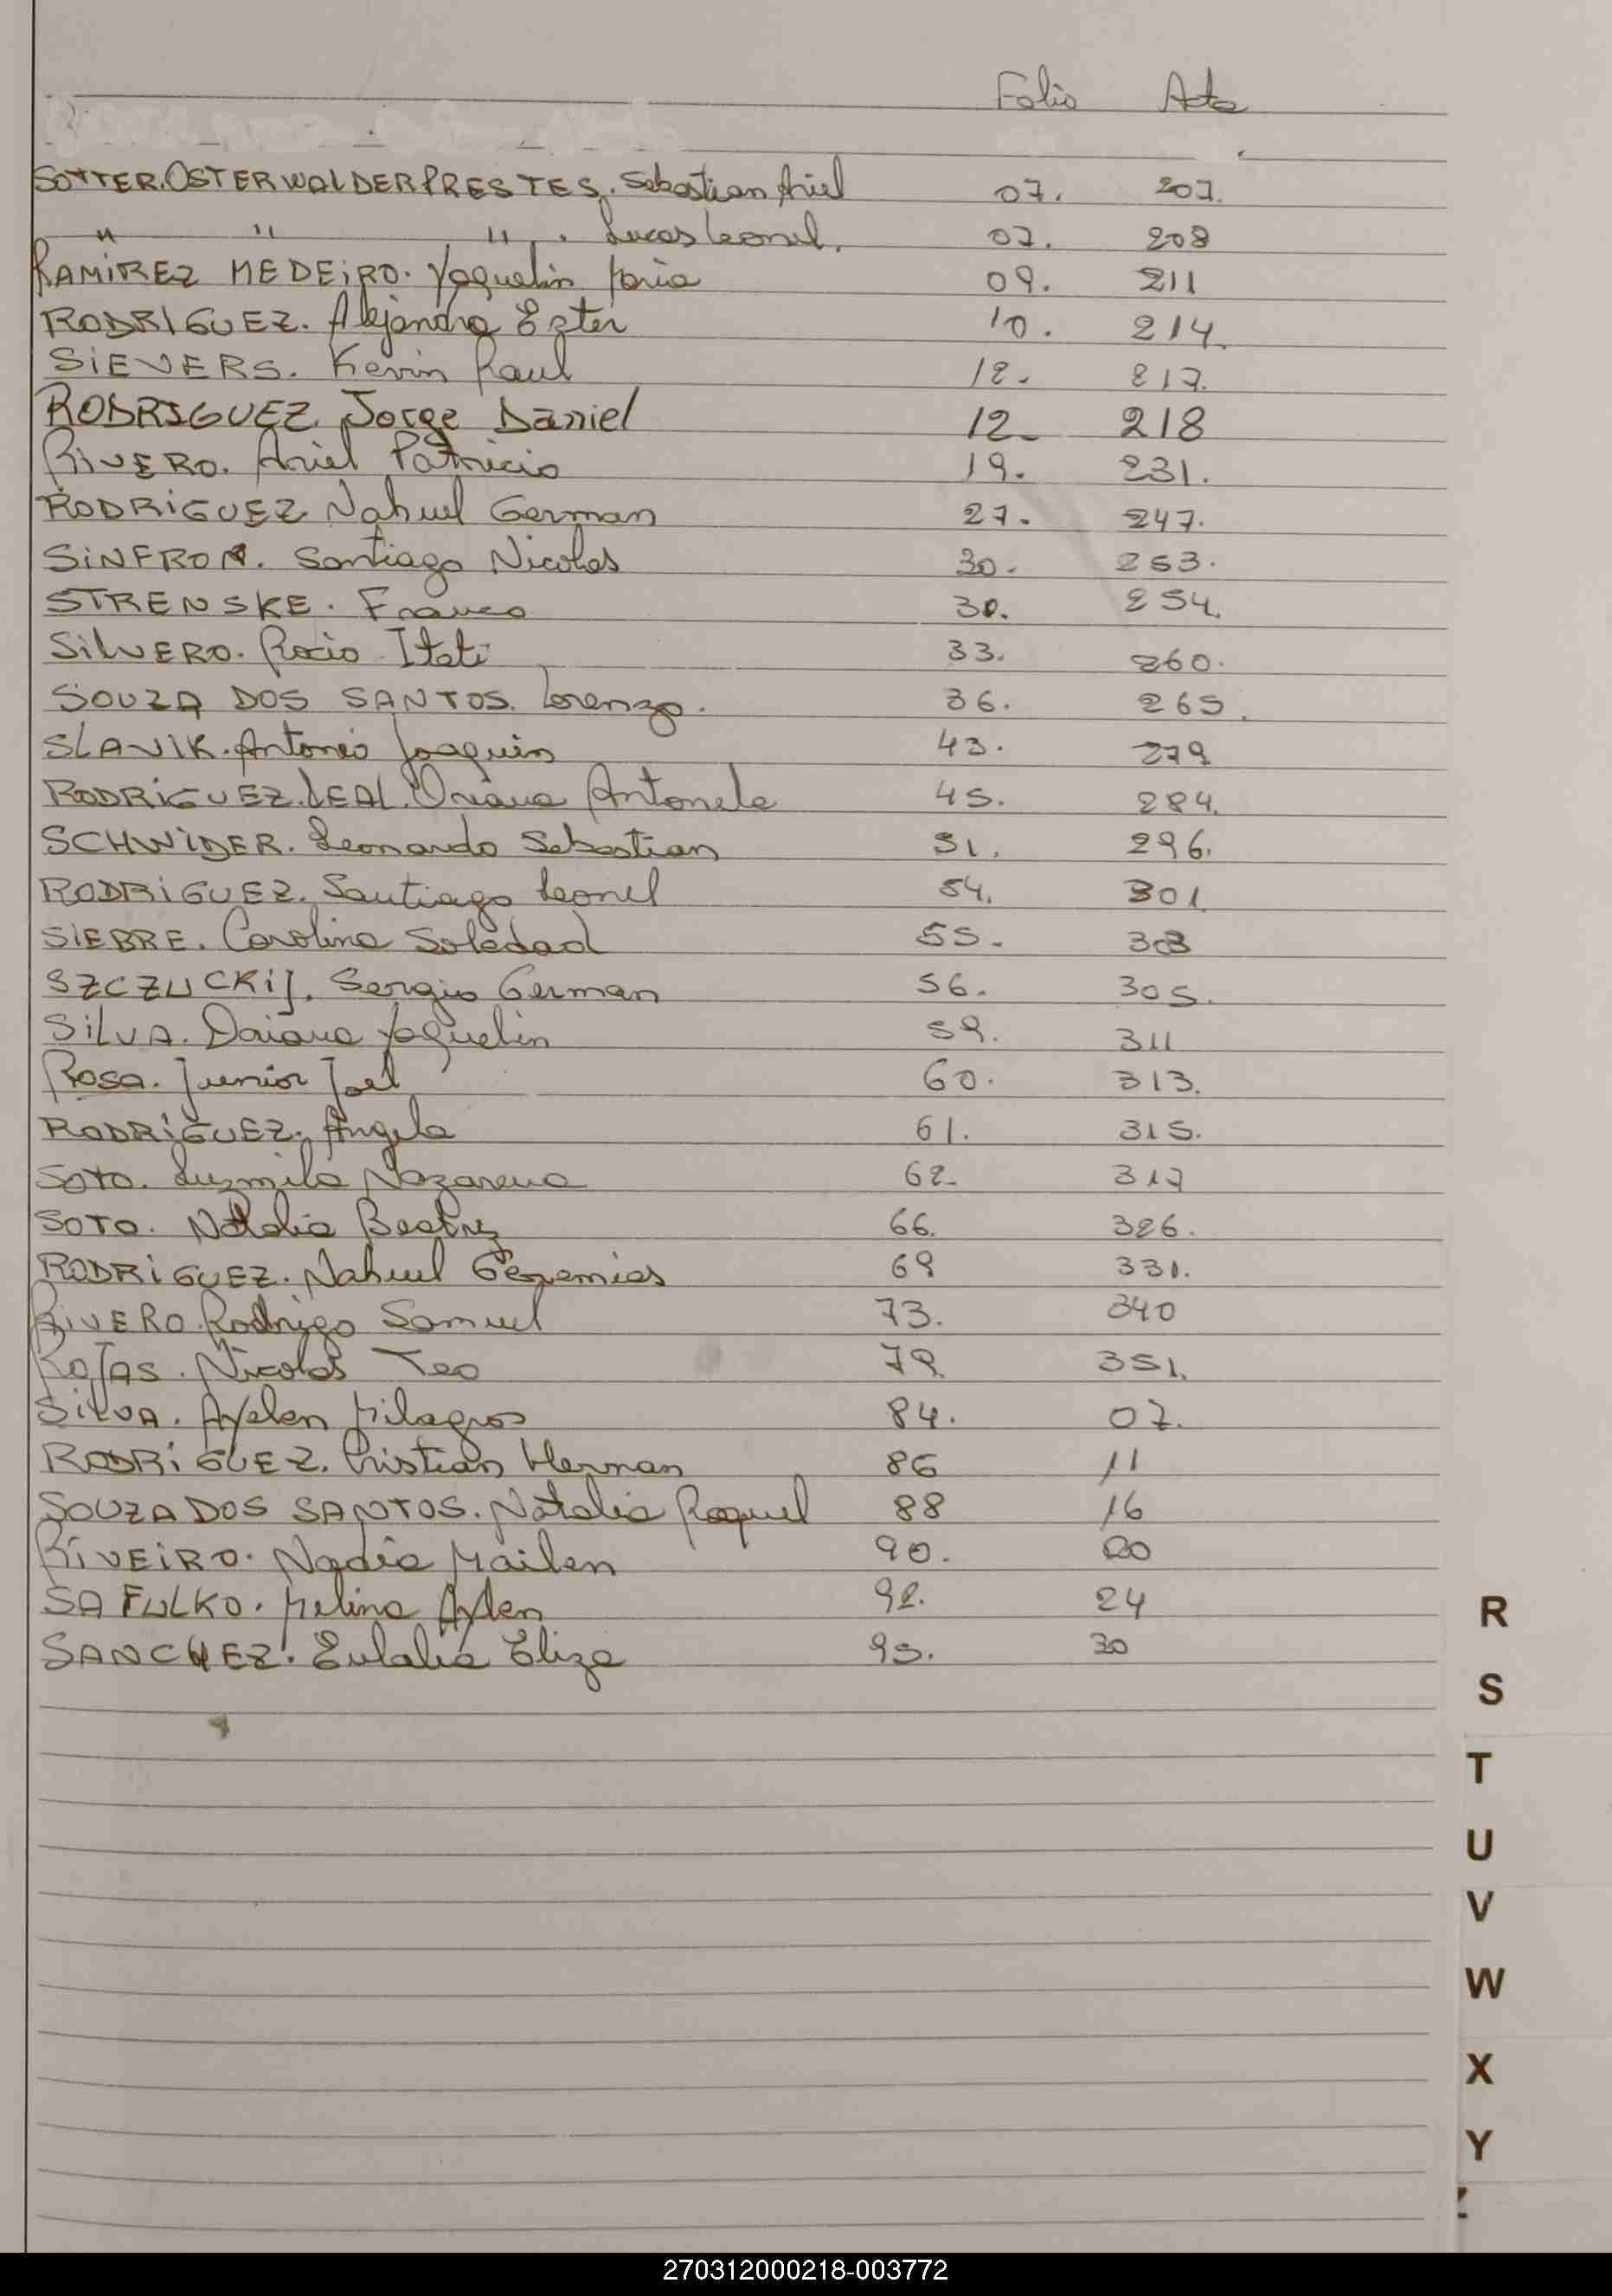 Folio Acta
SOTTER.OSTERWALDER PRESTES. Sebastian Ariel 07. 207.
" " " . Lucas Leonel. 07. 208
RAMIREZ MEDEIRO. Yaquelin Maria 09. 211
RODRIGUEZ. Alejandra Ester 10. 214.
SIEVERS. Kevin Raul 12. 217.
RODRIGUEZ. Jorge Daniel 12. 218
RIVERO. Ariel Patricio 19. 231.
RODRIGUEZ Nahuel German 27. 247.
SINFRON. Santiago Nicolas 30. 253.
STRENSKE. Franco 30. 254.
SILVERO. Rocio Itati 33. 260.
SOUZA DOS SANTOS. Lorenzo. 36. 265.
SLAVIK. Antonio Joaquin 43. 279
RODRIGUEZ.LEAL. Oriana Antonela 45. 284.
SCHWIDER. Leonardo Sebastian 51. 296.
RODRIGUEZ. Santiago Leonel 54. 301
SIEBRE. Carolina Soledad 55. 303
SZCZUCKIJ. Sergio German 56. 305.
SILVA. Daiana Yaquelin 59. 311
Rosa. Junior Joel 60. 313.
RODRIGUEZ. Angela 61. 315.
SOTO. Luzmila Nazarena 62. 317
SOTO. Natalia Beatriz 66. 326.
RODRIGUEZ. Nahuel Geremias 69 331.
RIVERO. Rodrigo Samuel 73. 340
ROJAS. Nicolas Teo 79 351.
SILVA. Ayelen Milagros 84. 07.
RODRIGUEZ. Cristian Hernan 86 11
SOUZA DOS SANTOS. Natalia Raquel 88 16
RIVEIRO. Nadia Mailen 90. 20
SAFULKO. Melina Aylen 92. 24
SANCHEZ. Eulalia Eliza 95. 30
R
S
T
U
V
W
X
Y
Z
270312000218-003772